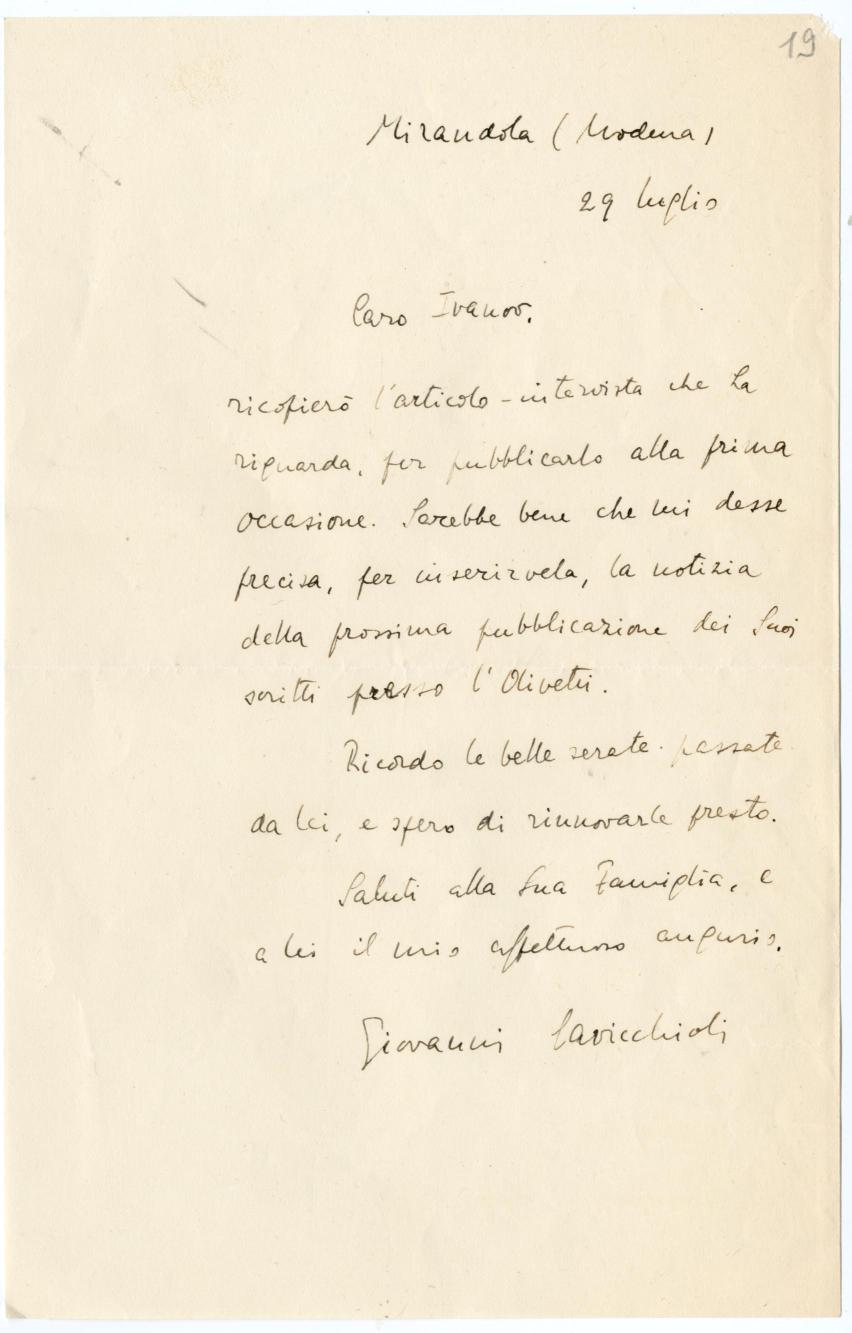 19
Mirandola (Modena)
29 luglio
Caro Ivanov.
ricopierò l'articolo-intervista che La
riguarda, per pubblicarlo alla prima
occasione. Sarebbe bene che mi desse
precisa, per inserirvela, la notizia
della prossima pubblicazione dei Suoi
scritti presso l'Olivetti.
Ricordo le belle serate passate
da lei, e spero di rinnovarle presto.
Saluti alla Sua Famiglia, e
a lei il mio affettuoso augurio.
Giovanni Cavicchioli